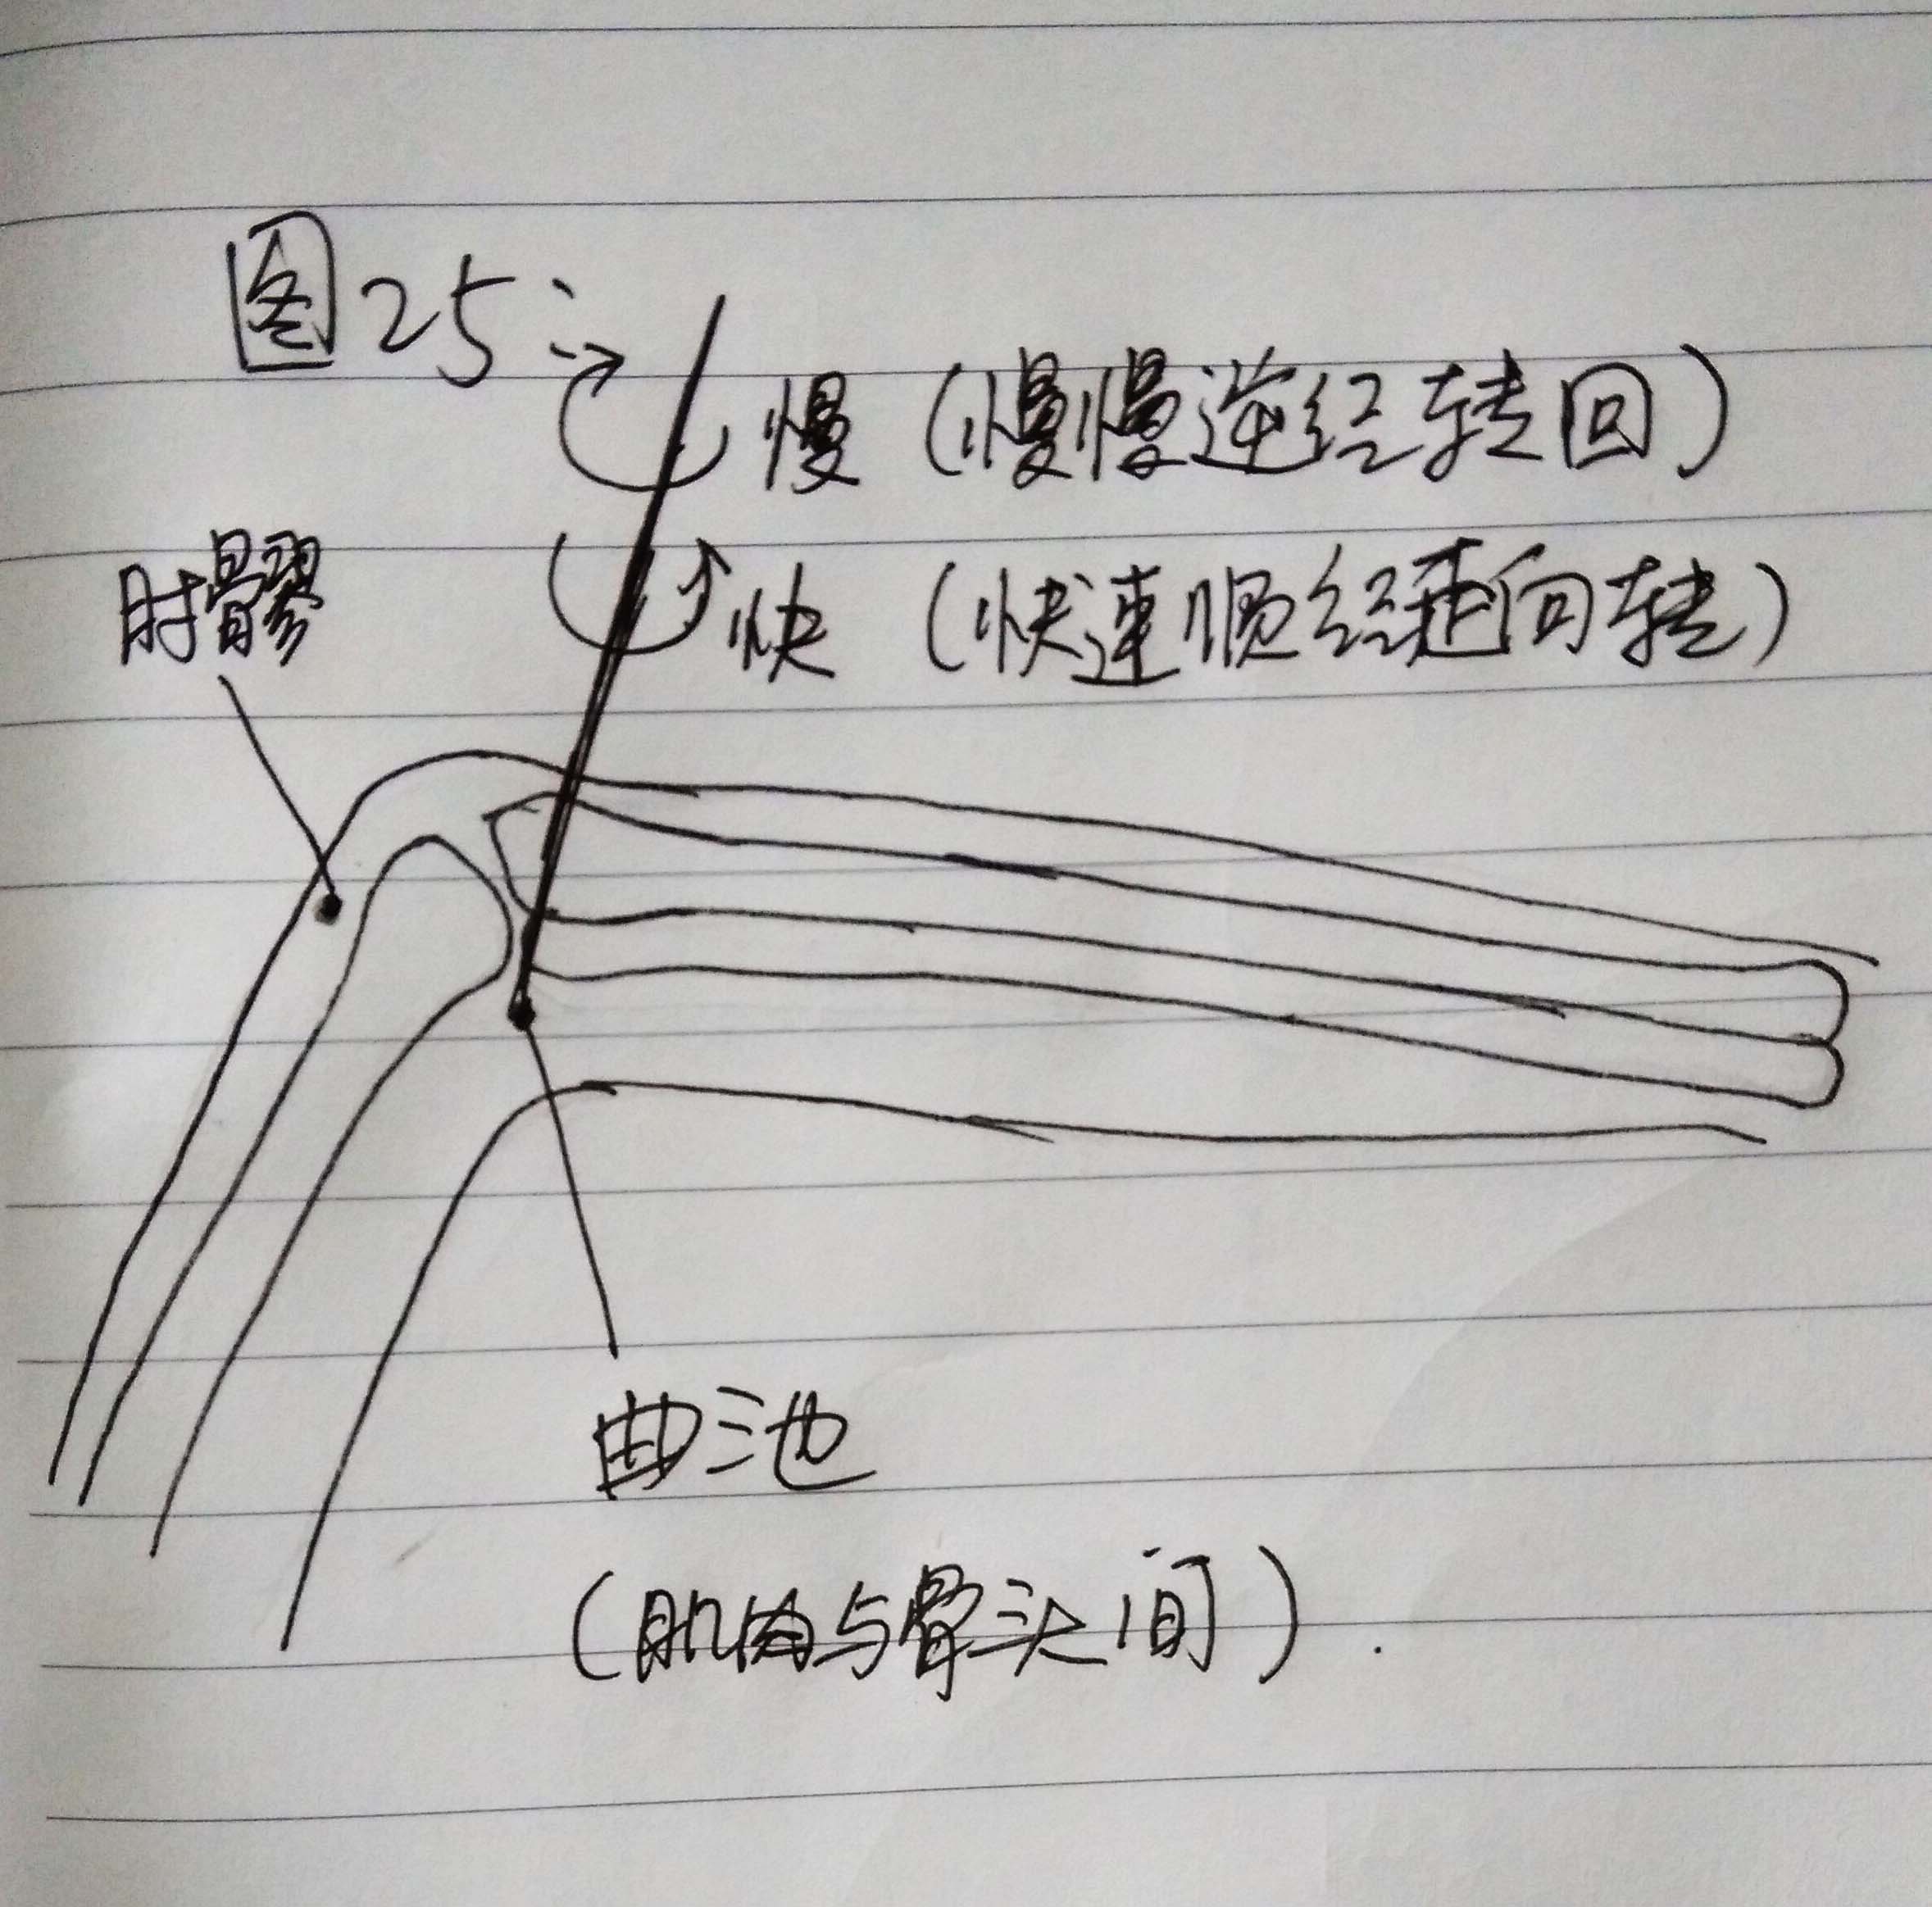 图25:
慢（慢慢逆经转回）
肘髎
快（快速顺经走向转）
曲池
（肌肉与骨头间）.